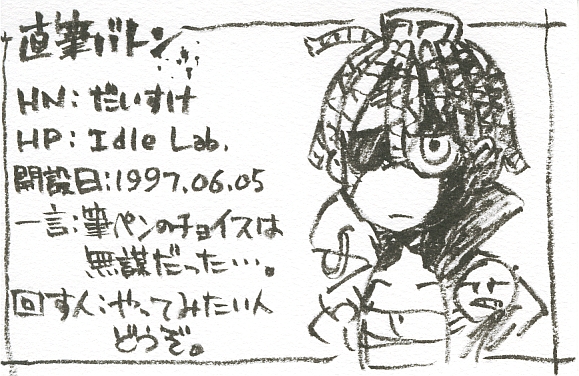 直筆バトン
HN:だいすけ
HP:Idle Lab.
開設日:1997.06.05
一言:筆ペンのチョイスは
無謀だった…。
回す人:やってみたい人
どうぞ。